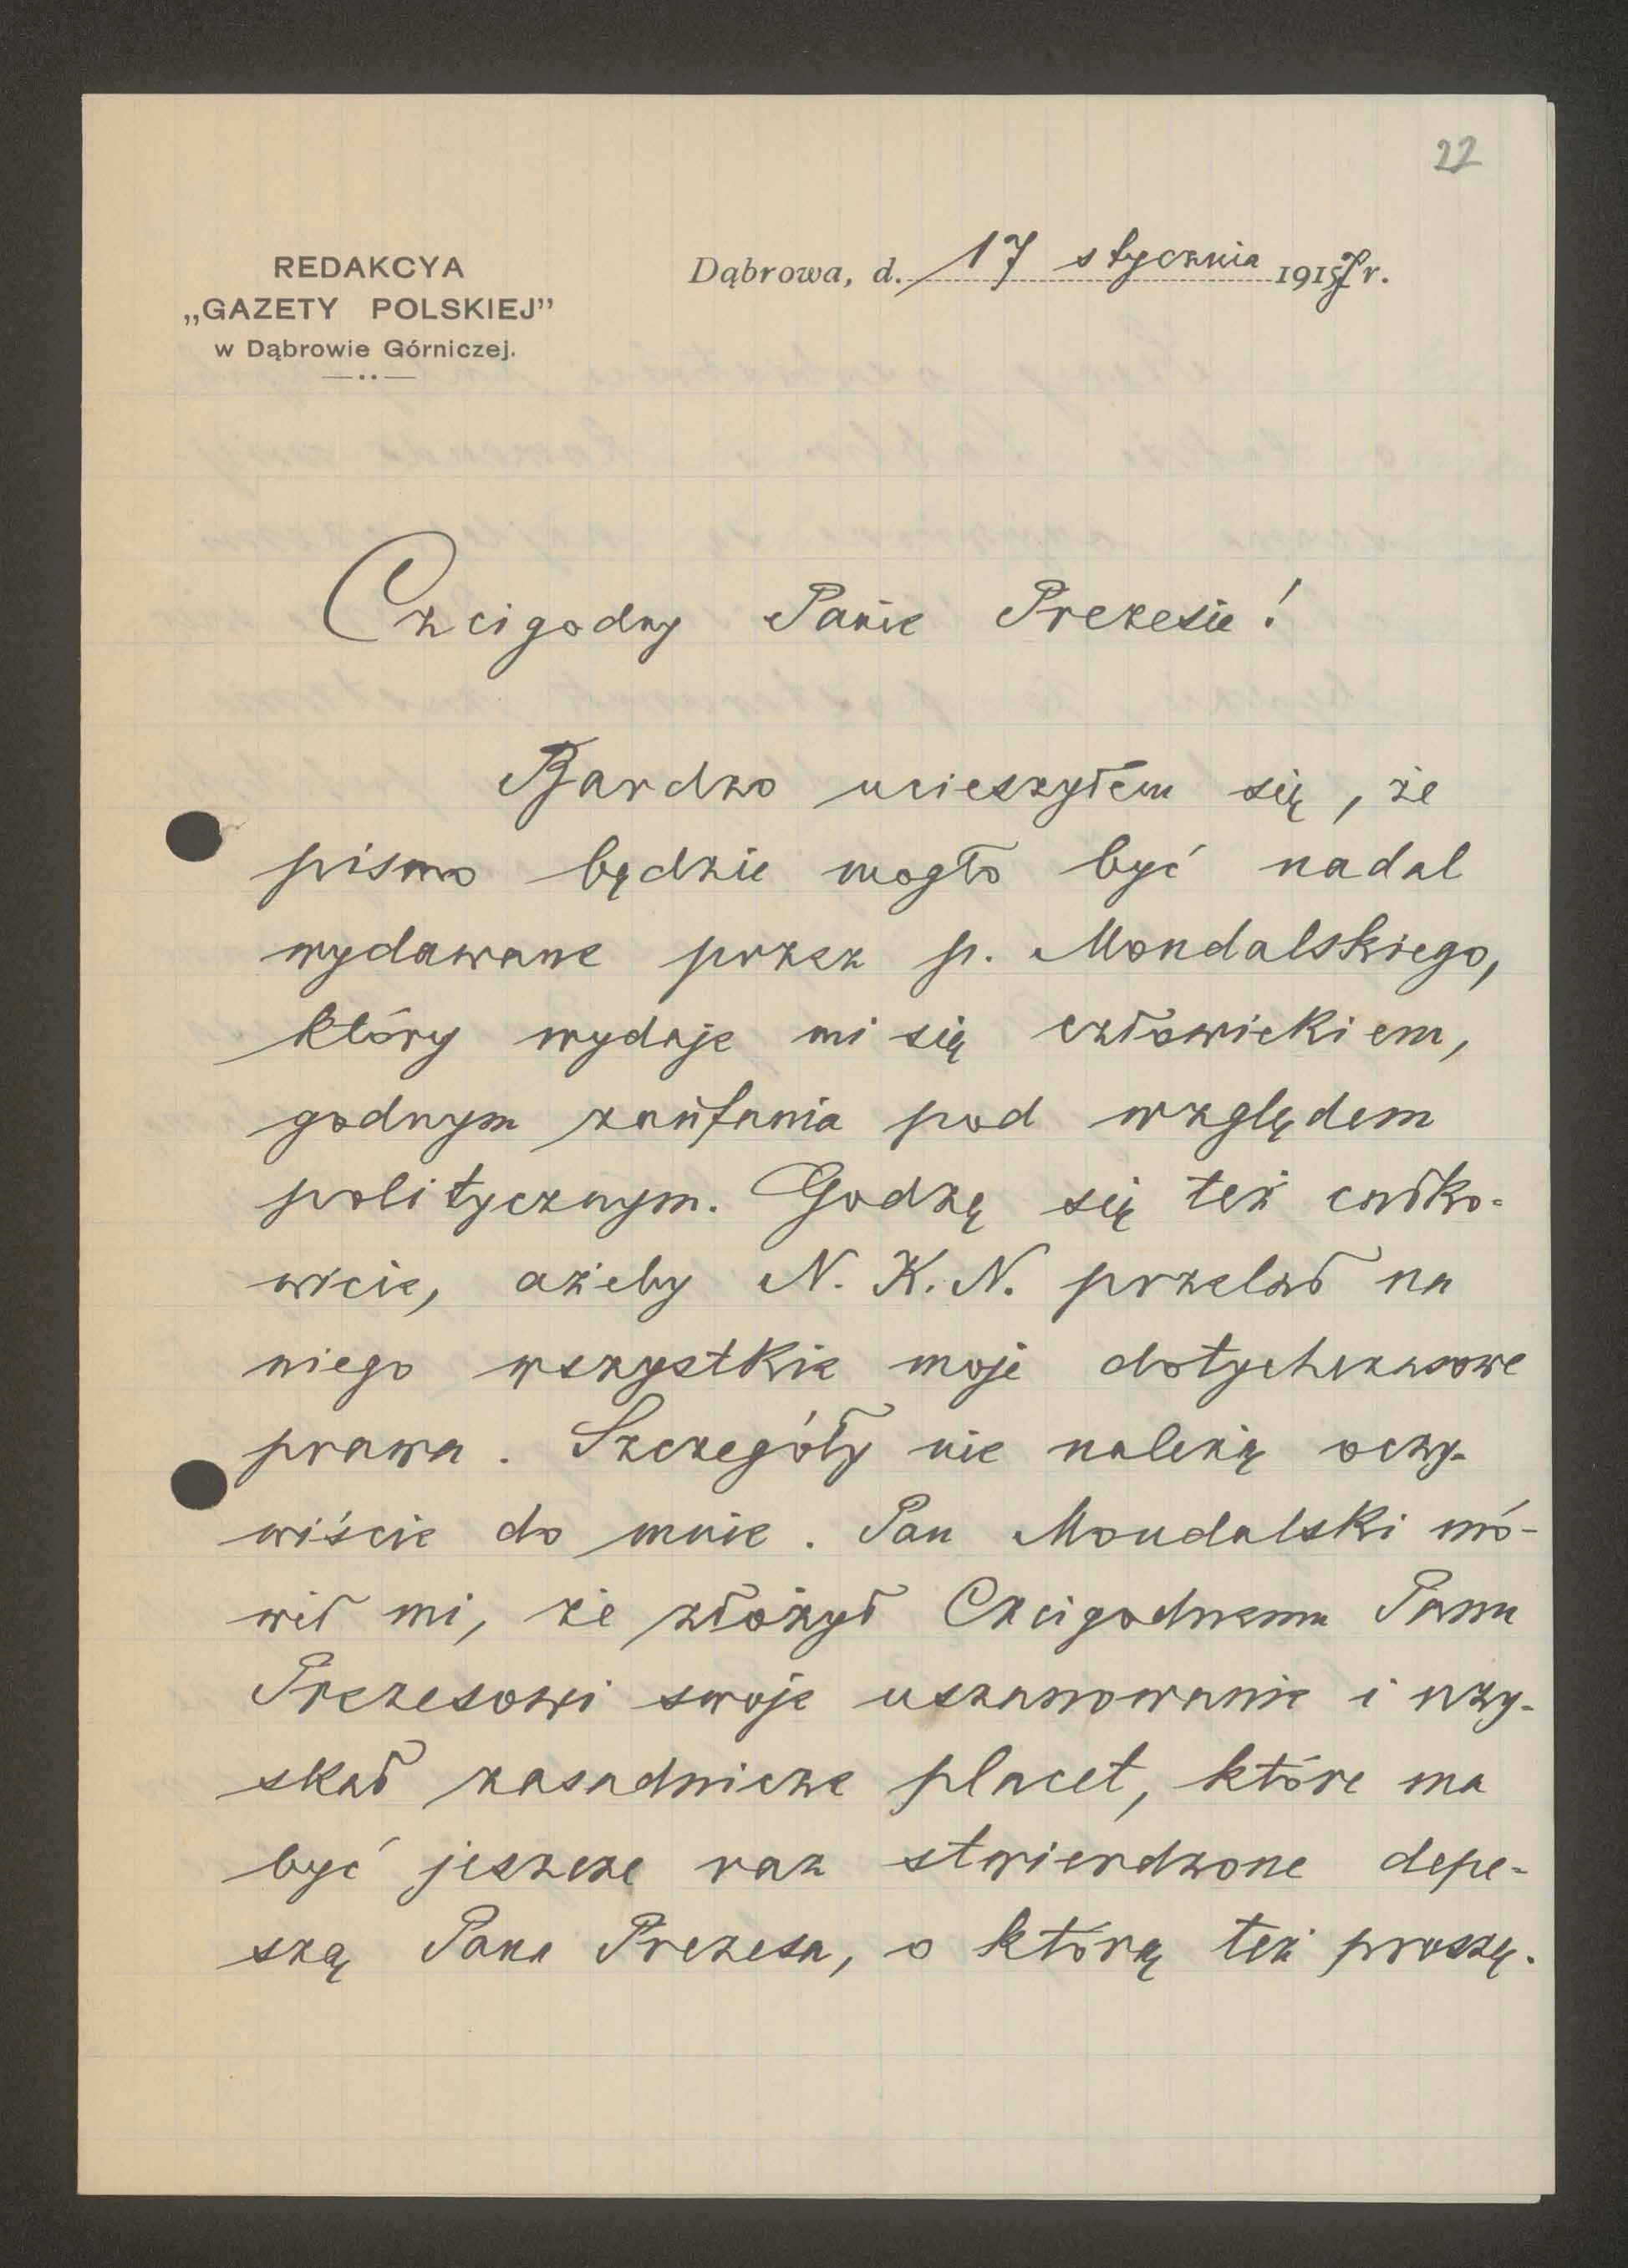 22
REDAKCYA
„GAZETY POLSKIEJ”
w Dąbrowie Górniczej.
Dąbrowa, d. 17 stycznia 1917 r.
Czcigodny Panie Prezesie!
Bardzo ucieszyłem się, że
pismo będzie mogło być nadal
wydawane przez p. Mondalskiego,
który wydaje mi się człowiekiem,
godnym zaufania pod względem
politycznym. Godzę się też całko-
wicie, ażeby N. K. N. przelał na
niego wszystkie moje dotychczasowe
prawa. Szczegóły nie należą oczy-
wiście do mnie. Pan Mondalski mó-
wił mi, że złożył Czcigodnemu Panu
Prezesowi swoje uszanowanie i uzy-
skał zasadnicze placet, które ma
być jeszcze raz stwierdzone depe-
szą Pana Prezesa, o którą też proszę.